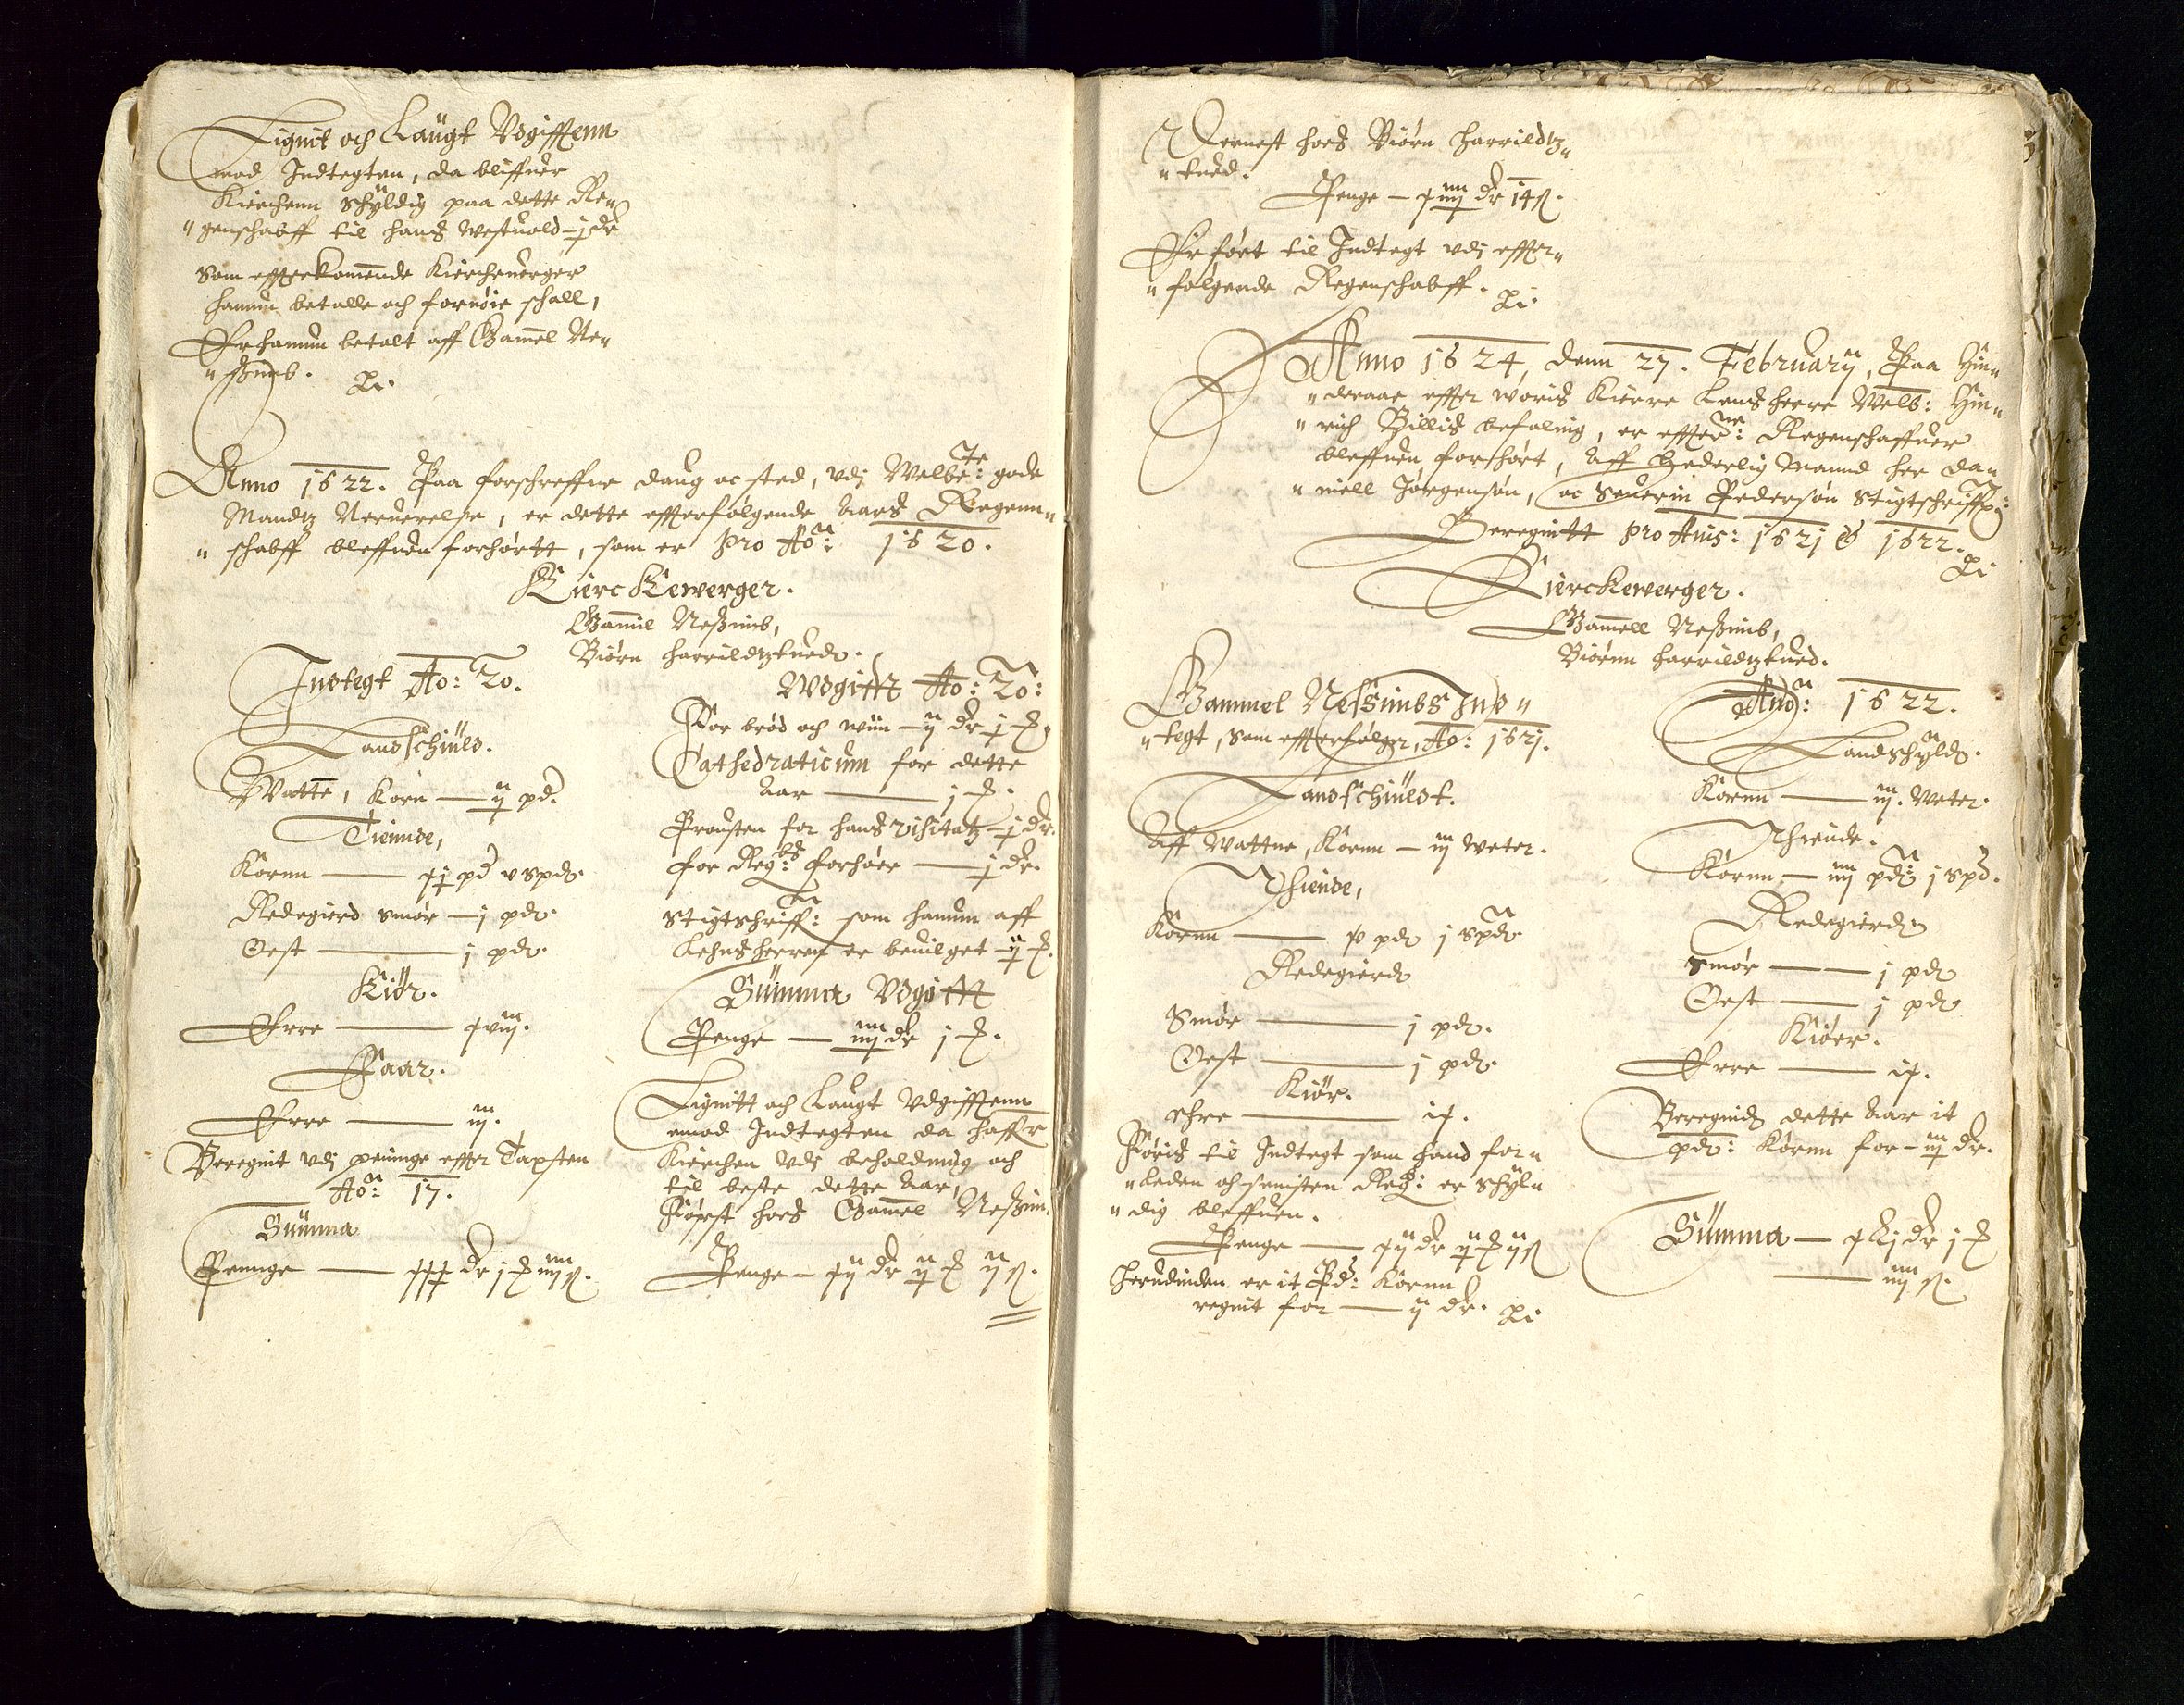 Lignit och Laugt Vdgifftenn
mod Indtegten, da bliffuer
Kierchenn Schyldig paa dette Re„
„genschabff til hans Westuold – j dr
Som effterkomende Kiercheuerger
hannum betalle och fornøie schall,
Er hannum betalt aff Gamel Ne„
„ßimb.
Anno 1622. Paa forschreffne daug oc sted, vdj Welbe:te gode
Mandtz Neruerelse, er dette effterfølgende Aars Regenn„
„schabff bleffuen forhørtt, som er pro Ao: 1620.
KircKewerger.
Gamil Neßimb,
Biørn harrildtztued.
Indtegt Ao: 20.
Landschiuld.
Watte, Korn — ij pd.
Tiennde,
Kornn — xj pd v spd.
Redegierd Smør — j pd.
Oest — j pd.
Kiør.
Erre — xviij.
Faar.
Erre — iij.
Beregnit vdj peninge effter Taxsten
Ao: 17.
Summa
Penge — xxx dr j iiij ß.
Wdgifft Ao: 20:
For brød och wiin — ij dr j
Cathedraticum for dette
Aar — j
Prousten for hans visitatz – j dr.
for Reg:bs forhøer — j dr.
Stigtschriff: som hannum aff
Lehnsherren er beuilget – ij
Summa Vdgifft
Penge — iiij dr j
Lignitt och Laugt Vdgifftenn
emod Indtegten da haffr
Kierchen Vdj beholdning och
til beste dette Aar,
Først hoes Gamel Neßim.
Penge – xij dr ij ij ß.
Dernest hoes Biørn harrildtz„
„tued.
Penge — xiiij dr 14 ß.
Er ført til Indtegt vdj effter„
„følgende Regenschabff.
Anno 1624, denn 27. Februarij, Paa Hin„
„deraae effter woris Kierre Lensherre Welb: Hin„
„rich Billis befaling, er effter:ne Regenschaffuer
bleffuen forhørt, Aff Hederlig Mannd her Da„
„niell Jørgensøn, oc Seuerin Pedersøn Stigtschriff:
Beregnitt pro Anis: 1621 & 1622.
Kierckewerger.
Gamell Neßimb,
Biørnn harrildtztued.
Gammel Neßimbs Ind„
„tegt, som effterfølger, Ao: 1621.
Landschiuldt.
Aff Wattne, Kornn — iij Weter.
Thiende,
Kornn — x pd j spd.
Redegierd
Smør — j pd.
Oest — j pd.
Kiør.
ehre — ix.
Føris til Indtegt som hand for„
„leden oh senisten Reg: er schyl„
„dig bleffuen.
Penge — xij dr ij ij ß
herudinden er it Pd: Kornn
regnit for — ij dr.
Anno: 1622.
Landschyld.
Kornn — iij. Weter.
Thiende.
Kornn — iiij pd: j spd.
Redegierd.
Smør — j pd
Oest — j pd
Kiøer.
Erre — ix.
Beregnid dette Aar it
pd: Kornn for — iij dr.
Summa — xLj dr j
— iiij ß.